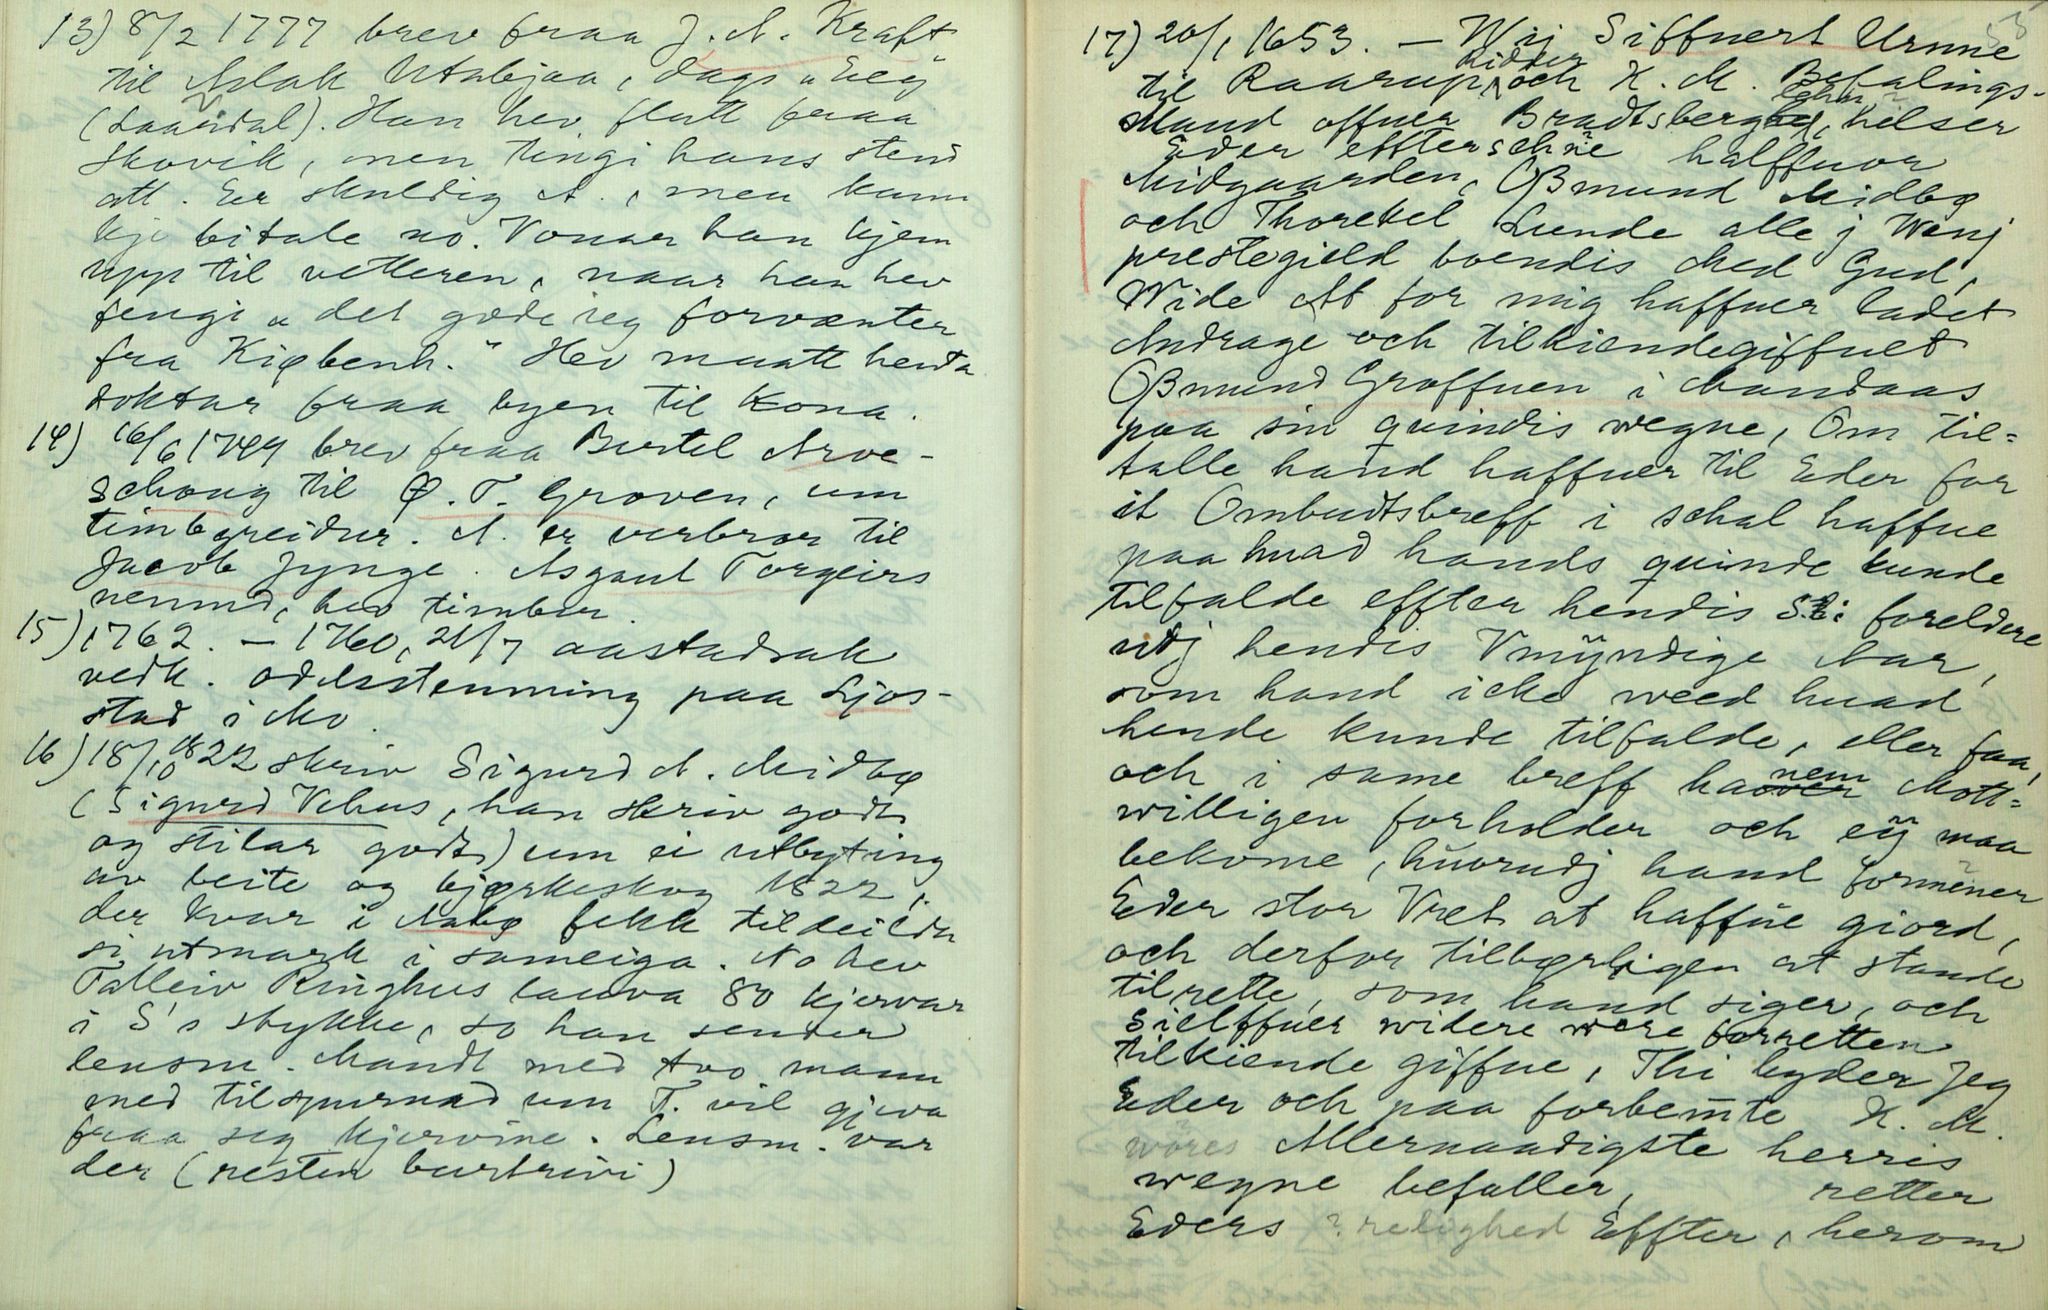 13) 8/2 1777 brev fraa J. N. Kraft
til Aslak Utabjaa, dags „Eeg"
(Laardal). Han hev flutt fraa
Skovik, men tingi hans stend
att. Er skuldig A., men kann
kje bitale no. Vonar han kjem
upp til vetteren, naar han hev
fengi „det gode jeg forvænter
fra Kiøbenh." Hev maatt henta
doktar fraa byen til kona.
14) 16/6 1799 brev fraa Bertel Arve-
schoug til Ø. T. Groven, um
timbgreidur. A. er verbror til
Jacob Jynge. Asgaut Torgeirs
nemnd, hev timbur.
15) 1762. – 1760, 21/7 aastadsak
vedk. odelsstemning paa Ljos-
stad i Mo.
16) 18/10 1822 skriv Sigurd A. Midbø
(Sigurd Vehus, han skriv godt
og stilar godt) um ei utbyting
av beite og bjørkeskog 1822,
der kvar i Nabø fekk tildeildu
si utmark i sameiga. No hev
Talleiv Ringhus lauva 80 kjervar
i S's stykke, so han sender
lensm. Mandt med tvo mann
med tilspurnad um T. vil gjeva
fraa seg kjervine. Lensm. var
der (resten burtrivi)
53
17) 20/1 1653. – Wij Siffuert Urnne
til Raarup, Ridder och K. M. Befalings-
Mand offuer Bradtsberg Lehn, helser
Eder effterschne halffuor
Midgaarden, Oßmund Midbø
och Thorekel Lunde alle j Wenj
prestegield boendis Med Gud,
Wide At for mig haffuer ladet
Andrage och tilkiendegiffuet
Oßmund Groffuen i Mandaas
paa sin quindis wegne, Om til=
talle hand haffuer til Eder for
it Ombudtsbreff i schal haffue
paa huad hands quinde kunde
tilfalde effter hendis S: foreldere
udj hendis Vmÿndige Aar,
som hand icke weed huad
hende kunde tilfalde, eller faa,
och i same breff hannem Mott=
willigen forholder och eÿ maa
bekome, huorudj hand formener
Eder stor Vret at haffue giord,
och derfor tilbørligen at stande
tilrette, som hand siger, och
sielffuer widere were forretten
tilkiende giffue, Thi byder Jeg
Eder och paa forbemte K. M.
wores Allernaadigste herris
wegne befaller, retter
Eders ?relighed Effter, herom